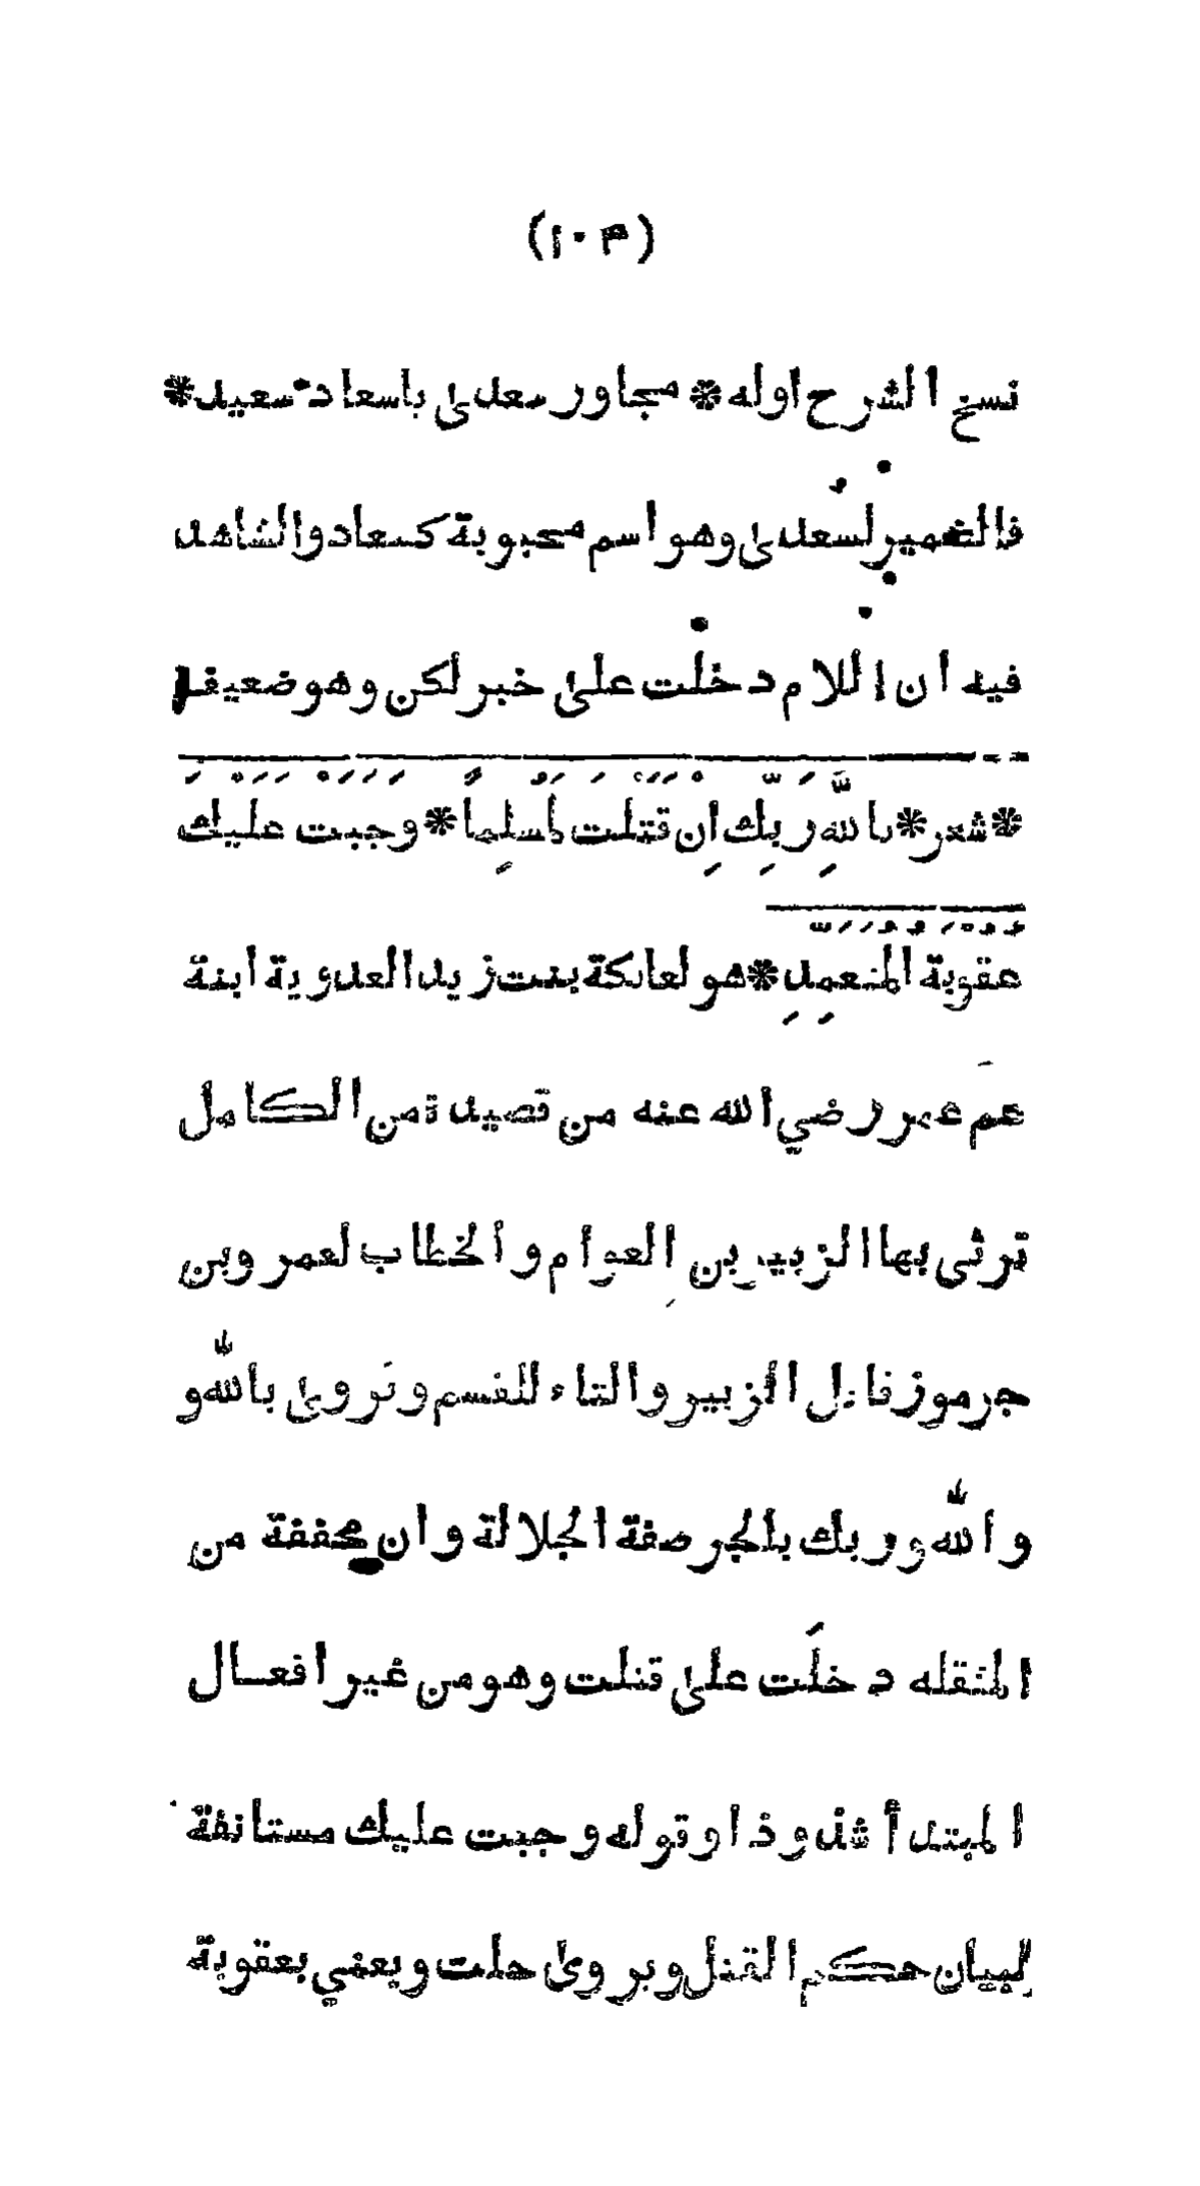 (١٠٣)
نسخ الشرح اوله * مجاور سعدى باسعاد سعيد *
فالضمير لسعدى وهو اسم محبوبة كسعاد والشاهد
فيه ان اللام دخلت على خبر لكن وهو ضعيف
* شعر * بِاللّٰهِ رَبِّكَ اِنْ قَتَلْتَ لَمُسْلِماً * وَجَبَتْ عَلَيْكَ
عُقُوبَةُ الْمُتَعَمِّدِ * هو لعاتكة بنت زيد العدوية ابنة
عم عمر رضي الله عنه من قصيدة من الكامل
ترثى بها الزبير بن العوام والخطاب لعمرو بن
جرموز قاتل الزبير والتاء للقسم وتروى بالله و
والله وربك بالجر صفة الجلالة وان مخففة من
المثقله دخلت على قتلت وهو من غير افعال
المبتدأ شذوذا وقوله وجبت عليك مستانفة
لبيان حكم القتل ويروى حلت ويعني بعقوبة